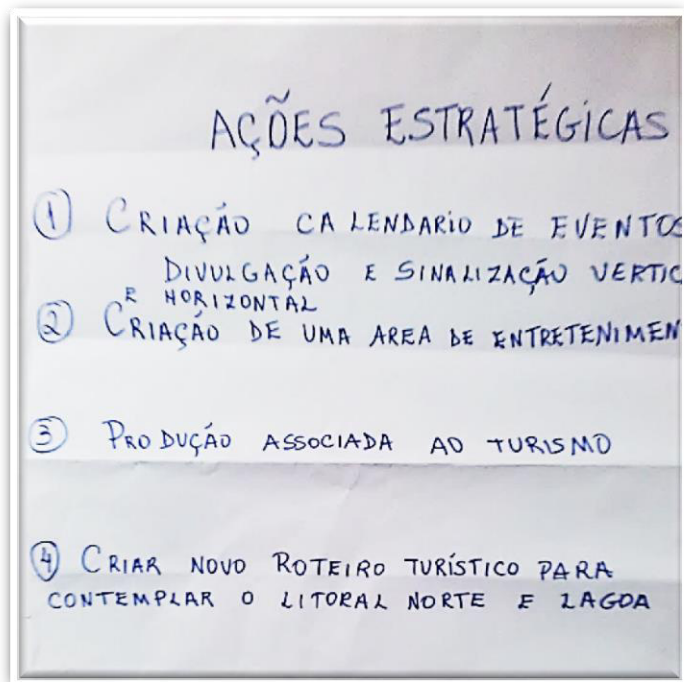 AÇÕES ESTRATÉGICAS
① CRIAÇÃO CALENDARIO DE EVENTOS
DIVULGAÇÃO E SINALIZAÇÃO VERTIC
E HORIZONTAL
② CRIAÇÃO DE UMA AREA DE ENTRETENIMEN
③ PRODUÇÃO ASSOCIADA AO TURISMO
④ CRIAR NOVO ROTEIRO TURÍSTICO PARA
CONTEMPLAR O LITORAL NORTE E LAGOA